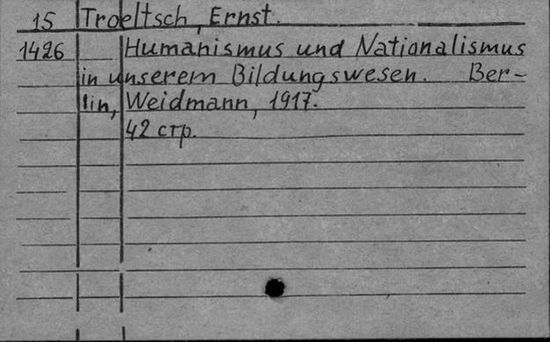 15 Troeltsch, Ernst.
1426 Humanismus und Nationalismus
in unserem Bildungswesen. Ber-
lin, Weidmann, 1917.
42 стр.